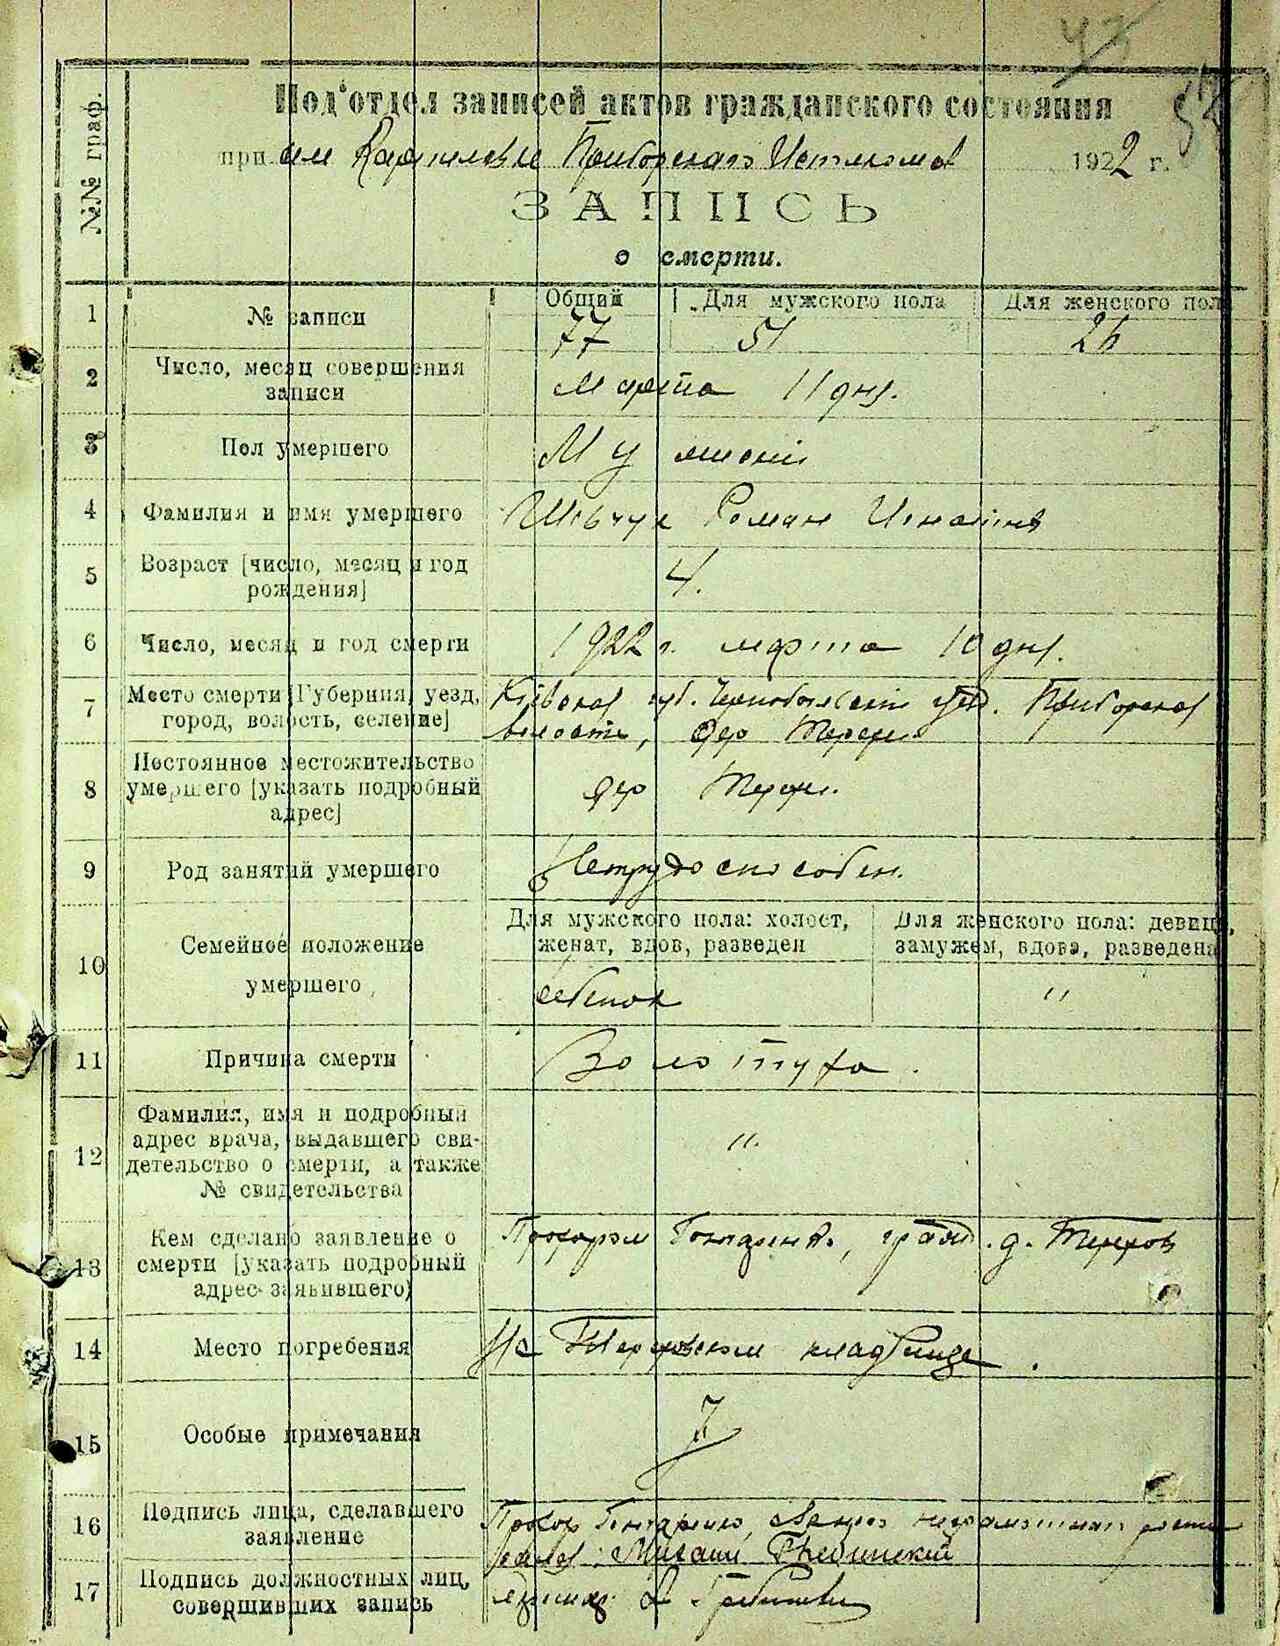 Под'отдел записей актов гражданского состояния
при Исполкома 1922 г.
ЗАПИСЬ
о смерти.
№№ граф.
1 № записи Общий Для мужского пола Для женского пол
77 51 26
2 Число, месяц совершения
записи
Марта 11 дня.
3 Пол умершего
Мужской
4 Фамилия и имя умершего
Шевчук Роман
5 Возраст [число, месяц и год
рождения]
4.
6 Число, месяц и год смерти
1922 г. марта 10 дня.
7 Место смерти [Губерния, уезд,
город, волость, селение]
Киевская губ. Чернобыльский уезд. Приборская
волость, дер
8 Постоянное местожительство
умершего [указать подробный
адрес]
дер
9 Род занятий умершего
Нетрудоспособен.
10 Семейное положение
умершего
Для мужского пола: холост,
женат, вдов, разведен
Для женского пола: девица,
замужем, вдова, разведена
ребенок "
11 Причина смерти
Золотуха.
12 Фамилия, имя и подробный
адрес врача, выдавшего сви-
детельство о смерти, а также
№ свидетельства
"
13 Кем сделано заявление о
смерти [указать подробный
адрес заявившего)
Прохором гражд. д.
14 Место погребения
На кладбище.
15 Особые примечания
16 Подпись лица, сделавшего
заявление
Прохор
Михаил
17 Подпись должностных лиц,
совершивших запись